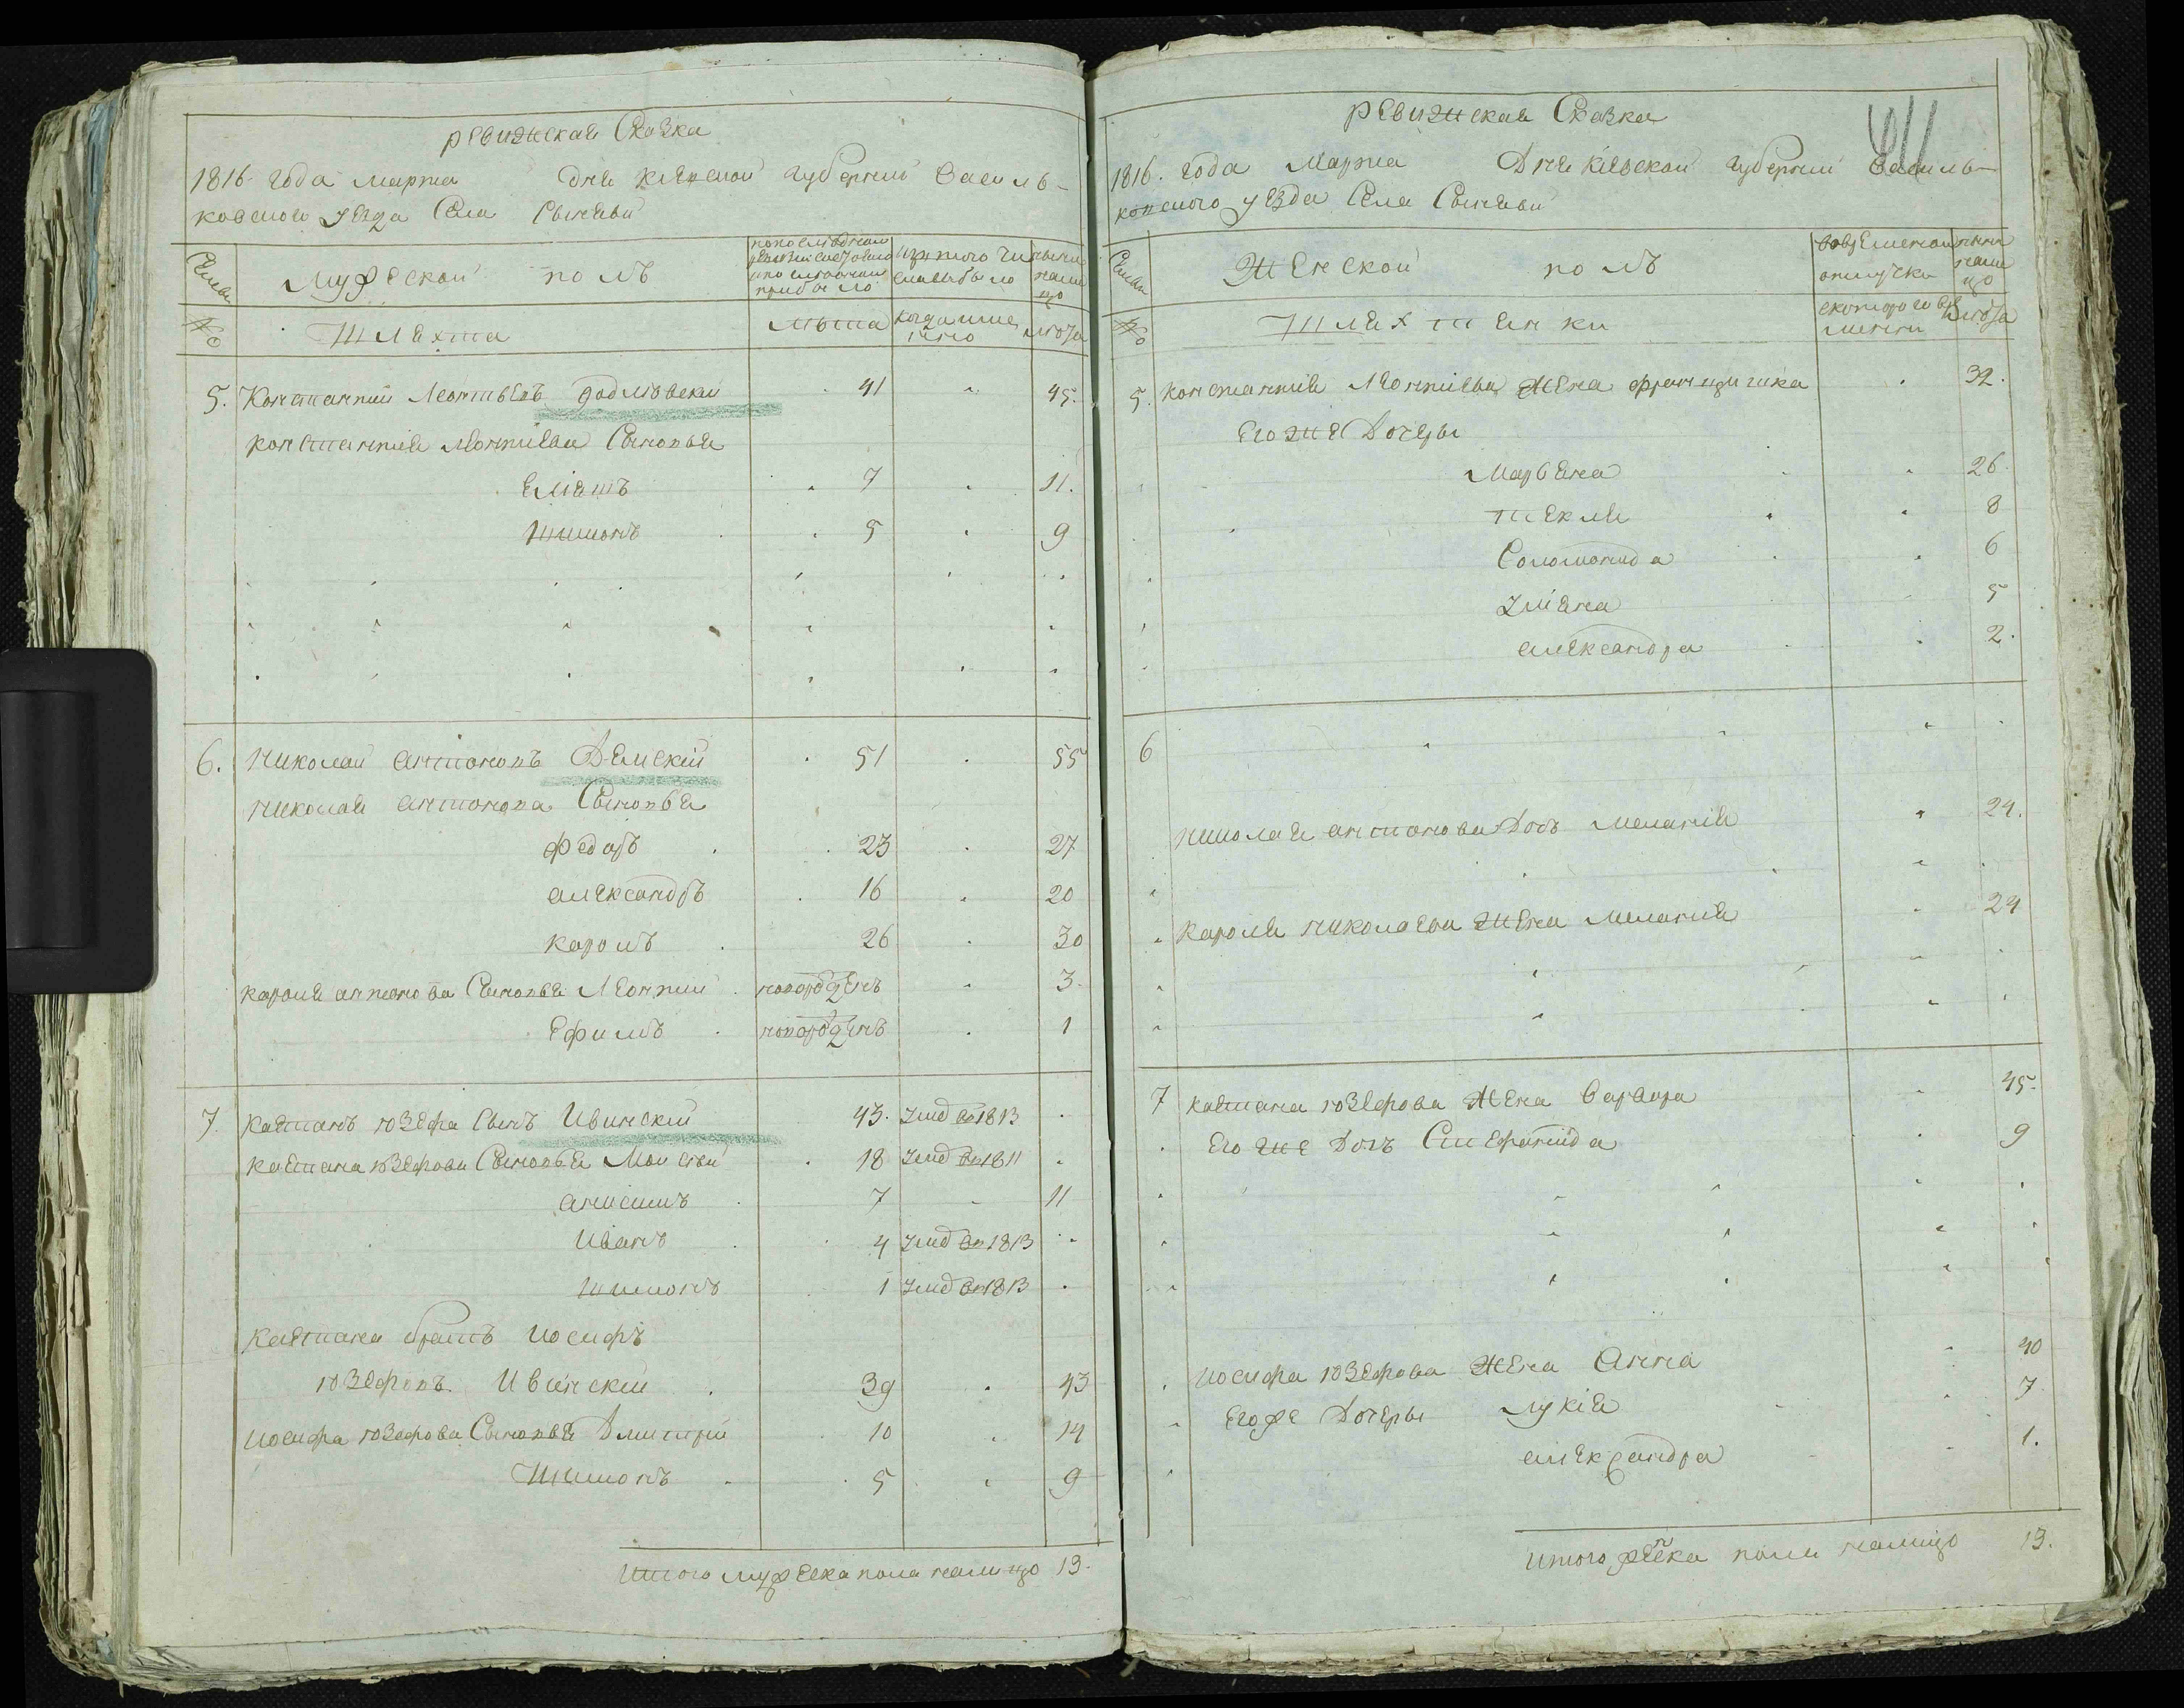 Ревижская Сказка
1816. года марта дня киевской губернии Василь-
ковского уезда Села Сынявы
Семьи Мужеской полъ
попоследнеи ревизии состояло и после оной прибыло
изтого числа выбыло
ныне налицо
№ Шляхта Лѣта когда именно лѣта
5. Константий Леонтьевъ 41 45.
Константия Леонтиева Сыновья
Елiашъ 7 11.
Шимонъ 5 9
6. Николай Антоновъ Демскiй 51 55
Николая Антонова Сыновья
Федоръ 23 27
Александръ 16 20
Кароль 26 30
Кароля Антонова Сыновья Леонтий новорожденъ 3.
Ефимъ новорожденъ 1
7. Каетанъ Юзефа Сынъ Ивинскiй 43. умер в 1813
Каетана Юзефова Сыновья Моисей 18 умер в 1811
Анисимъ 7 11
Иванъ 4 умер в 1813
Шимонъ 1 умер в 1813
Каетана братъ Иосифъ
Юзефовъ Ивинский 39 43
Иосифа Юзефова Сыновья Дмитрий 10 14
Шимонъ 5 9
Итого мужеска пола налицо 13.
Ревижская Сказка
1816. года Марта Дня Киевской губернии Василь-
ковского уезда Села Сынявы
Семьи Женской полъ
вовременной отлучке
ныне налицо
№ Шляхтенки скоторого времени лѣта
5. Константия Леонтиева жена Францишка 32.
Его же Дочеры
Марьена 26.
Текля 8
Соломонида 6
Улiена 5
Александра 2.
6
Николая Антонова Дочь Мелания 24.
Кароля Николаева жена Мелания 24
7 Каетана Юзефова жена Варвара 45.
Его же Дочь Стефанида 9
Иосифа Юзефова жена Анна 40
Его же Дочеры Лукiя 7
Александра 1.
Итого женска пола налицо 13.